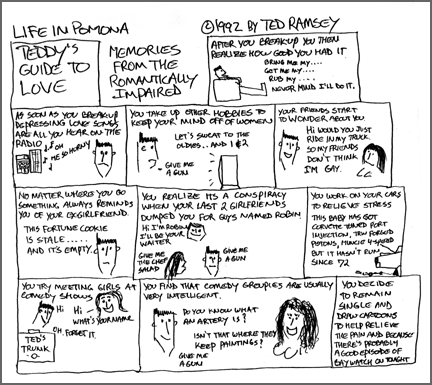 LIFE IN POMONA
©1992 BY TED RAMSEY
TEDDY'S
GUIDE TO
LOVE
MEMORIES
FROM THE
ROMANTICALLY
IMPAIRED
AFTER YOU BREAKUP YOU THEN
REALIZE HOW GOOD YOU HAD IT
BRING ME MY....
GET ME MY....
RUB MY....
NEVER MIND I'LL DO IT.
AS SOON AS YOU BREAKUP
DEPRESSING LOVE SONGS
ARE ALL YOU HEAR ON THE
RADIO
OH
ME SO HORNY
YOU TAKE UP OTHER HOBBIES TO
KEEP YOUR MIND OFF OF WOMEN
LET'S SWEAT TO THE
OLDIES.. AND 1 & 2
GIVE ME
A GUN
YOUR FRIENDS START
TO WONDER ABOUT YOU
HI WOULD YOU JUST
RIDE IN MY TRUCK
SO MY FRIENDS
DON'T THINK
I'M GAY.
NO MATTER WHERE YOU GO
SOMETHING, ALWAYS REMINDS
YOU OF YOUR EXGIRLFRIEND.
THIS FORTUNE COOKIE
IS STALE.....
AND IT'S EMPTY.
YOU REALIZE ITS A CONSPIRACY
WHEN YOUR LAST 2 GIRLFRIENDS
DUMPED YOU FOR GUYS NAMED ROBIN.
HI I'M ROBIN
I'LL BE YOUR
WAITER
GIVE ME
THE CHEF
SALAD
GIVE ME
A GUN
YOU WORK ON YOUR CARS
TO RELIEVE STRESS
THIS BABY HAS GOT
CORVETTE TUNED PORT
INJECTION, TRW FORGED
PISTONS, MUNCIE 4-SPEED
BUT IT HASN'T RUN
SINCE '72
YOU TRY MEETING GIRLS AT
COMEDY SHOWS
HI
HI
WHAT'S YOUR NAME
OH, FORGET IT.
TED'S
TRUNK
-O-
YOU FIND THAT COMEDY GROUPIES ARE USUALLY
VERY INTELLIGENT.
DO YOU KNOW WHAT
AN ARTERY IS?
ISN'T THAT WHERE THEY
KEEP PAINTINGS?
GIVE ME
A GUN
YOU DECIDE
TO REMAIN
SINGLE AND
DRAW CARTOONS
TO HELP RELIEVE
THE PAIN AND BECAUSE
THERE'S PROBABLY
A GOOD EPISODE OF
BAYWATCH ON TONIGHT